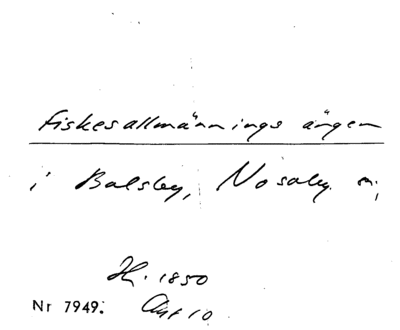 Fiskesallmännings ängen
i Balsby, Nosaby s:n,
H. 1850
Nr 7949. Akt 10